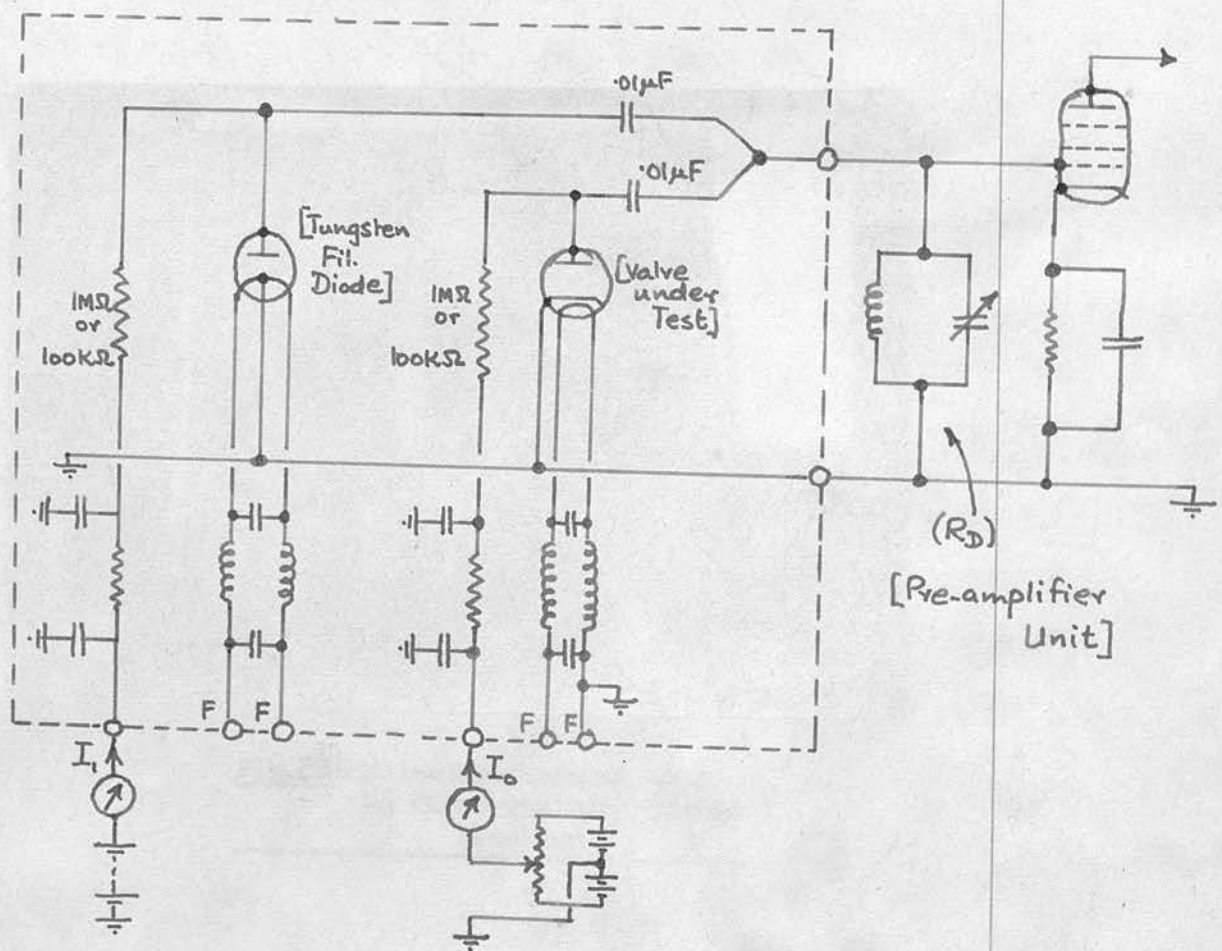 .01µF
.01µF
[Tungsten
Fil.
Diode]
[Valve
under
Test]
1MΩ
or
100KΩ
1MΩ
or
100KΩ
(R_D)
[Pre-amplifier
Unit]
F F
F F
I₁
I₀